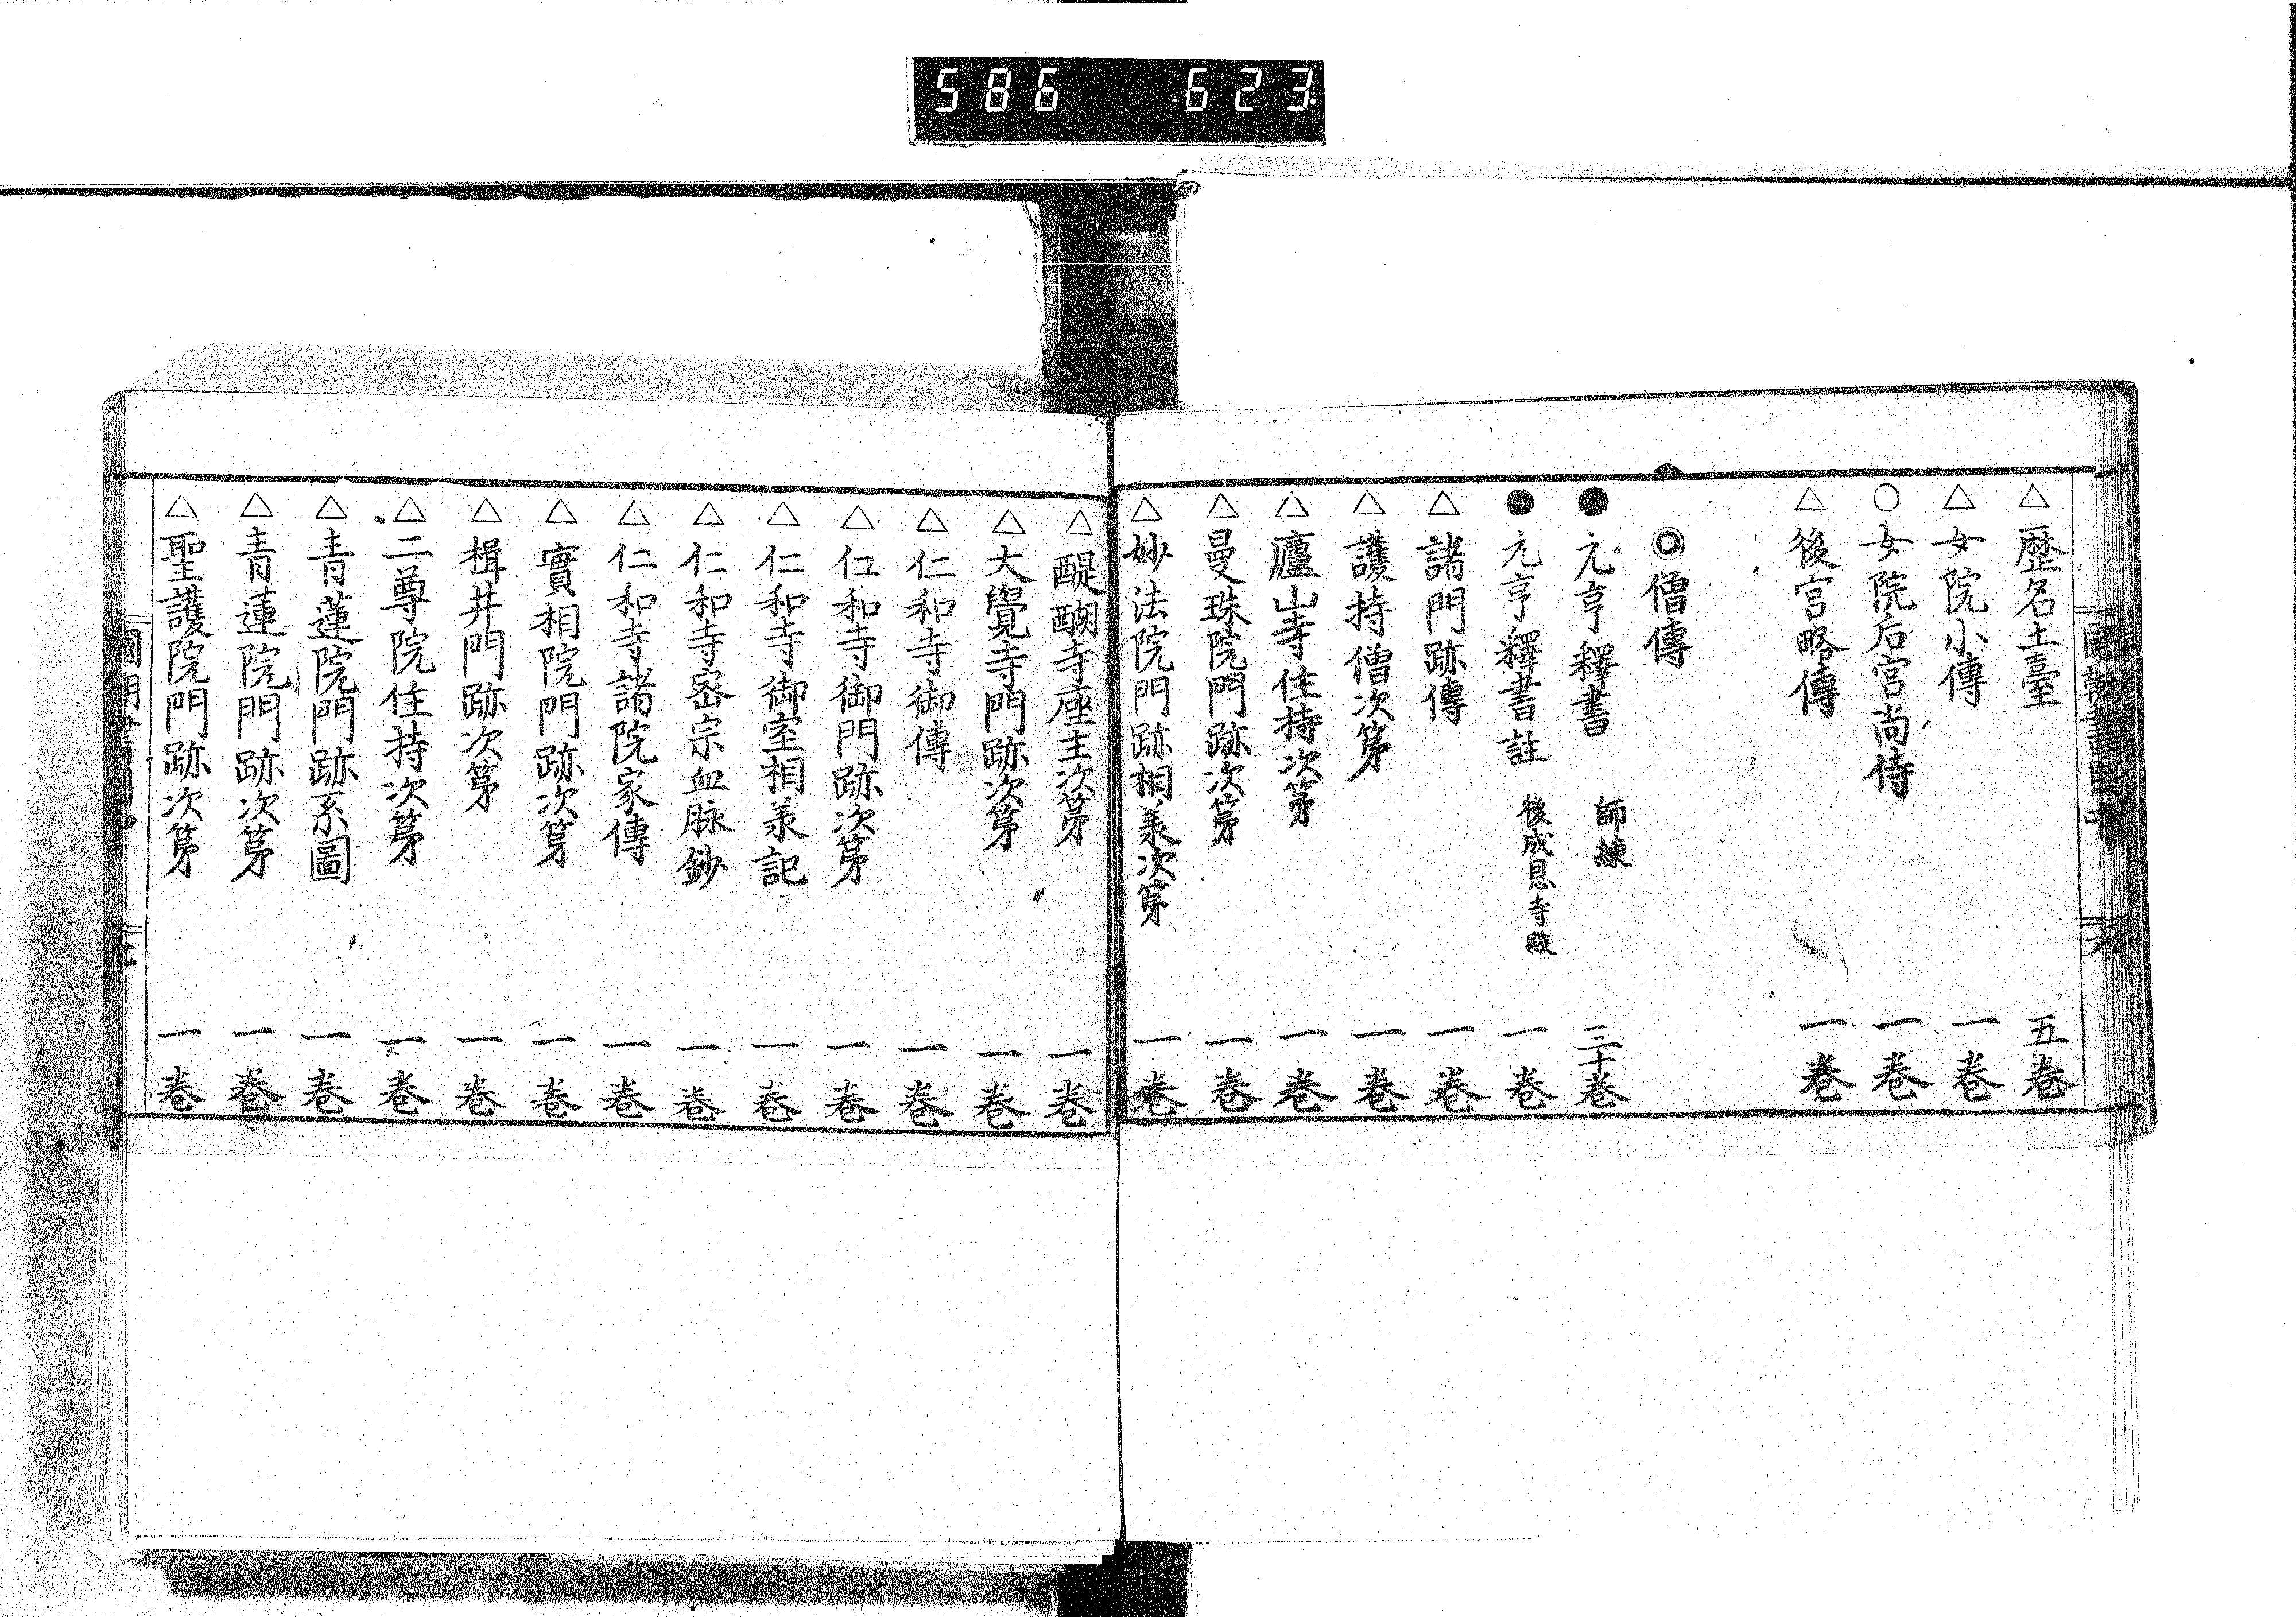 586 623
△歴名土臺 五卷
△女院小傳 一卷
○女院后宮尚侍 一卷
△後宮略傳 一卷
◎僧傳
●元亨釋書 師練 三十卷
●元亨釋書註 後成恩寺殿 一卷
△諸門跡傳 一卷
△護持僧次第 一卷
△廬山寺住持次第 一卷
△曼珠院門跡次第 一卷
△妙法院門跡相羕次第 一卷
△醍醐寺座主次第 一卷
△大覺寺門跡次第 一卷
△仁和寺御傳 一卷
△仁和寺御門跡次第 一卷
△仁和寺御室相羕記 一卷
△仁和寺密宗血脉鈔 一卷
△仁和寺諸院家傳 一卷
△實相院門跡次第 一卷
△楫井門跡次第 一卷
△二尊院住持次第 一卷
△青蓮院門跡系圖 一卷
△青蓮院門跡次第 一卷
△聖護院門跡次第 一卷